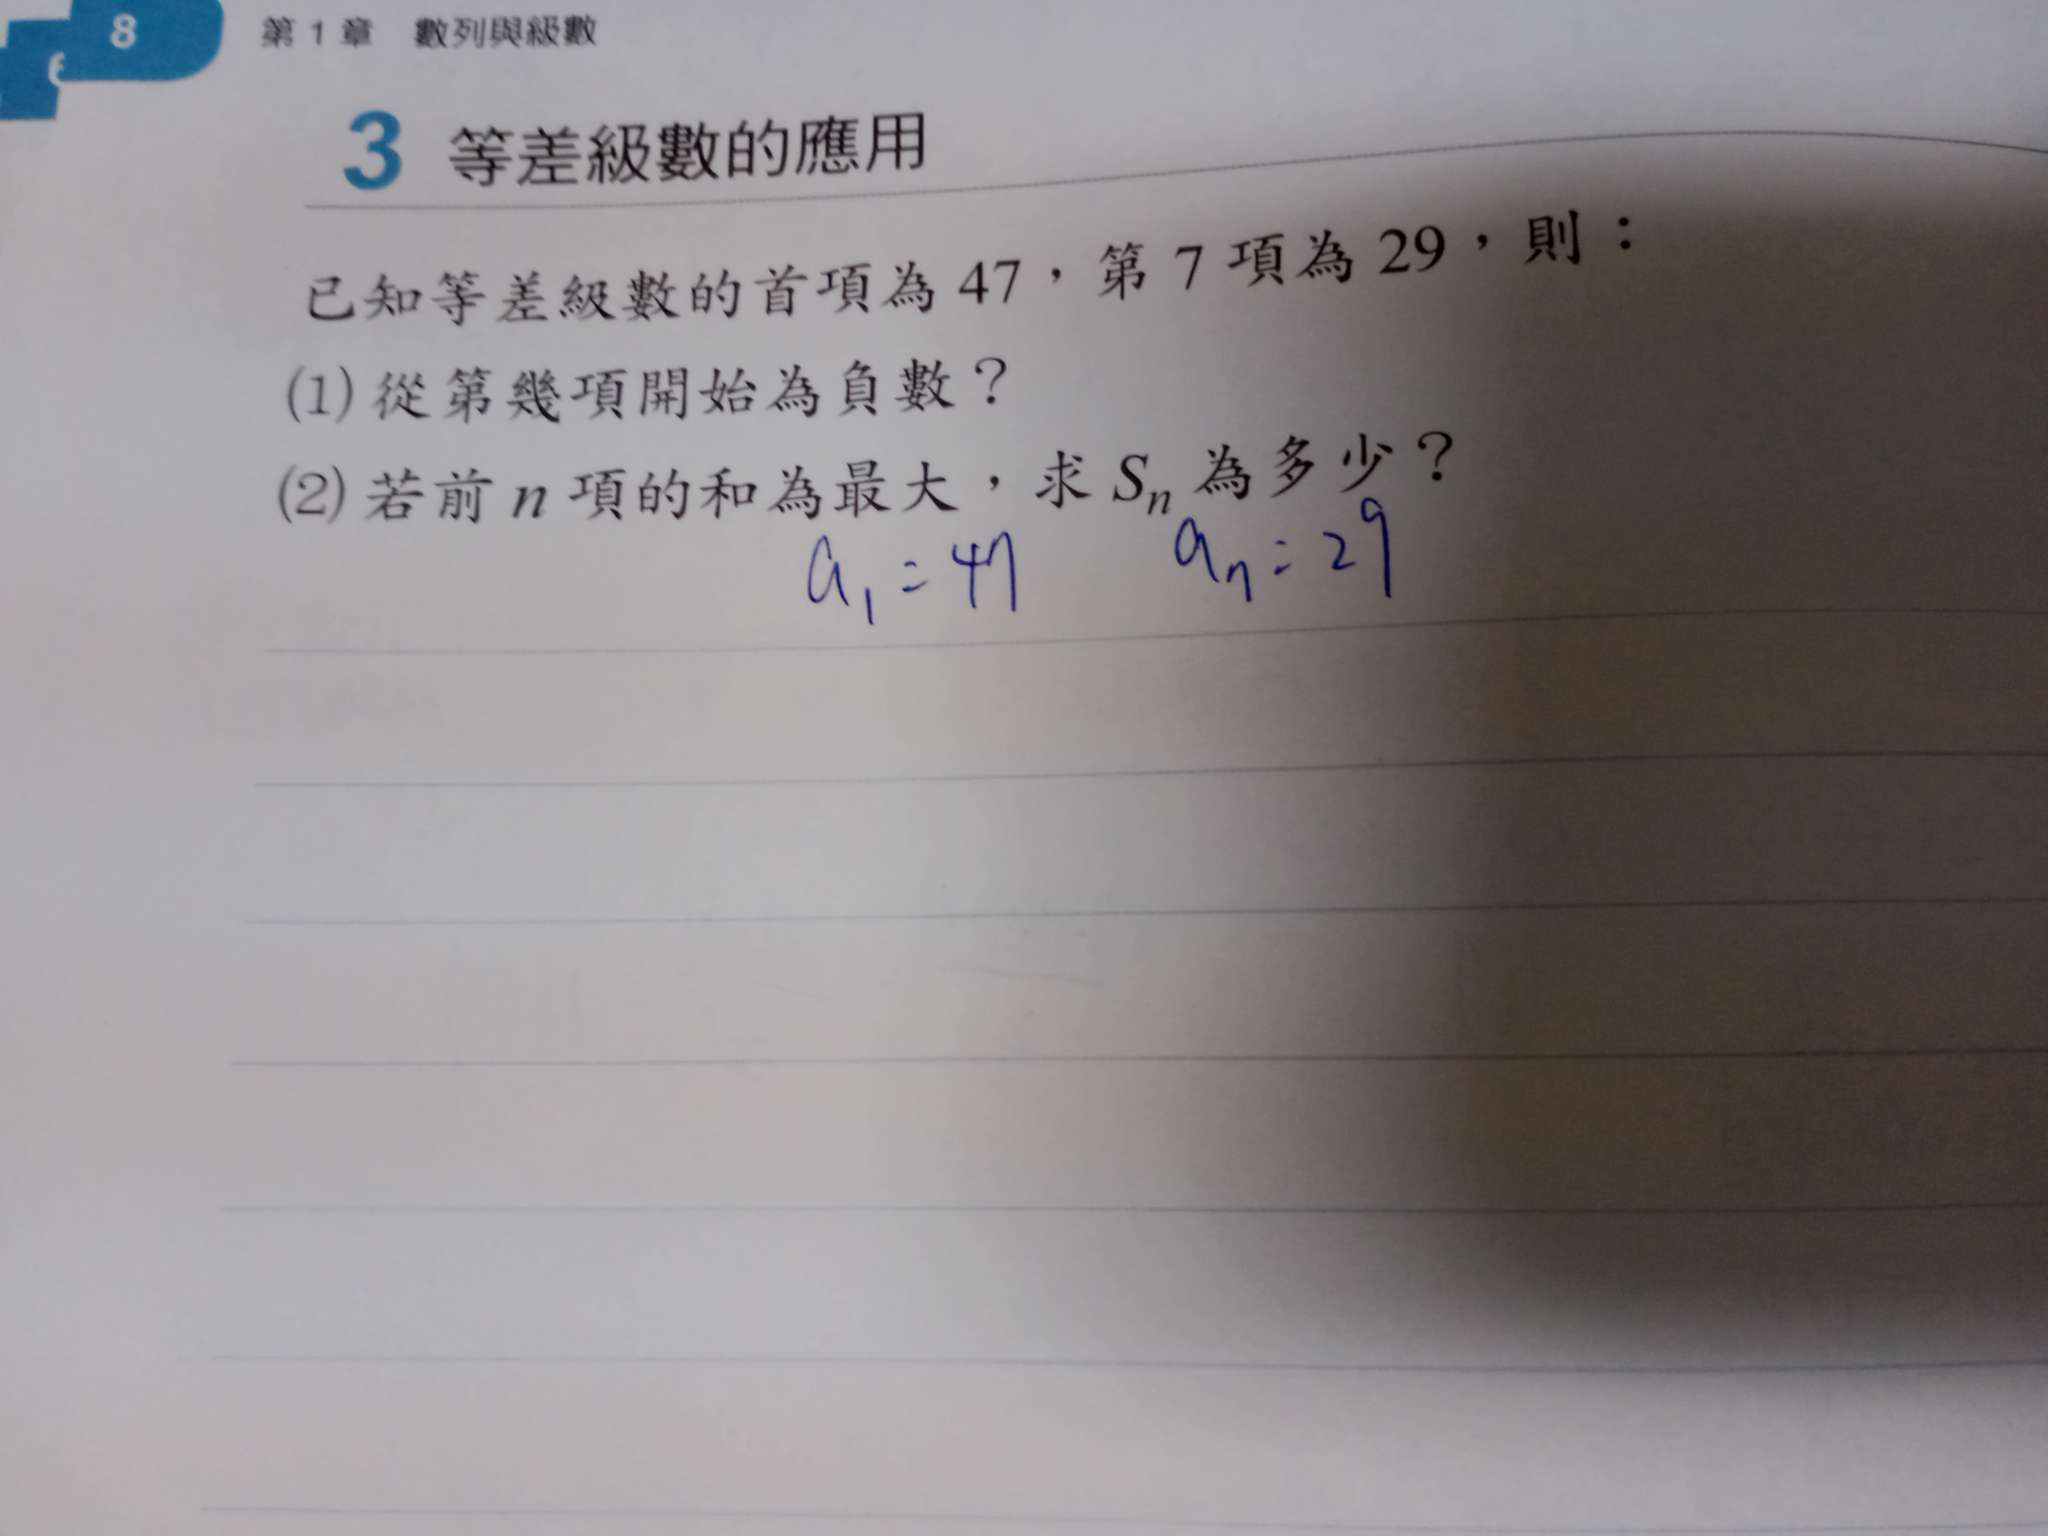 8 第 1 章 數列與級數
6
3 等差級數的應用
已知等差級數的首項為 47，第 7 項為 29，則：
(1) 從第幾項開始為負數？
(2) 若前 n 項的和為最大，求 Sn 為多少？
a1 = 47 a7 = 29